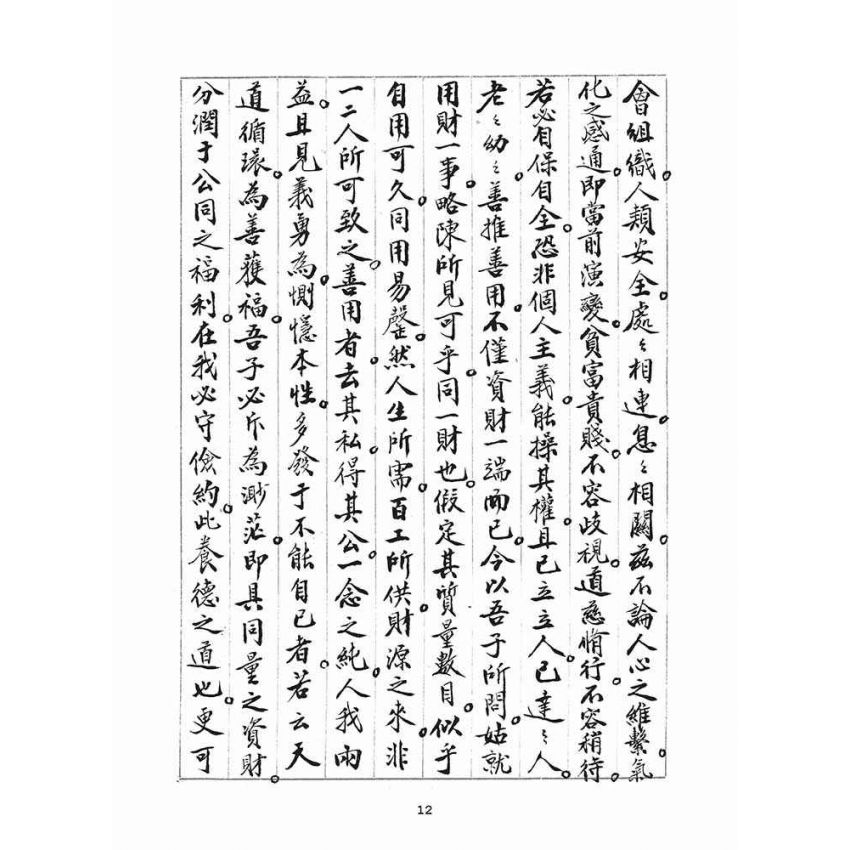 會組織。人類安全。處〻相連。息〻相關。茲不論人心之維繫。氣
化之感通。即當前演變。貧富貴賤。不容歧視。道慈脩行。不容稍待。
若必自保自全。恐非個人主義。能操其權。且己立立人。己達〻人。
老〻幼〻。善推善用。不僅資財一端而已。今以吾子所問。姑就
用財一事。略陳所見可乎。同一財也。假定其質量數目。似乎
自用可久。同用易罄。然人生所需。百工所供。財源之來。非
一二人所可致之。善用者。去其私。得其公。一念之純。人我兩
益。且見義勇為。惻隱本性。多發于不能自已者。若云天
道循環。為善獲福。吾子必斥為渺茫。即具同量之資財。
分潤于公同之福利。在我必守儉約。此養德之道也。更可
12